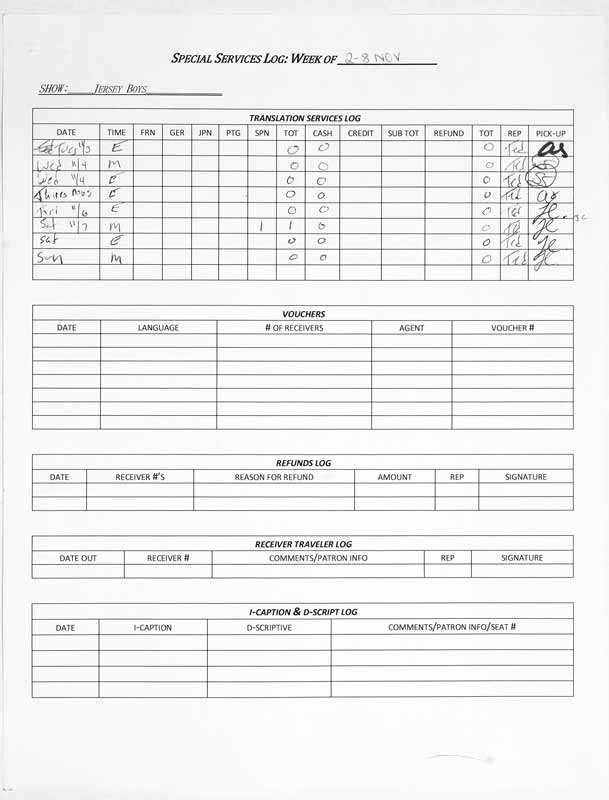 SPECIAL SERVICES LOG: WEEK OF 2-8 NOV
SHOW: JERSEY BOYS
TRANSLATION SERVICES LOG
DATE TIME FRN GER JPN PTG SPN TOT CASH CREDIT SUB TOT REFUND TOT REP PICK-UP
Tues 11/3 E 0 0 0 Ted as
Wed 11/4 M 0 0 0 Ted SS
Wed 11/4 E 0 0 0 Ted SS
Thurs E 0 0 0 Ted as
Fri 11/6 E 0 0 0 Ted
Sat 11/7 M 1 1 0 0 Ted
Sat E 0 0 0 Ted
Sun M 0 0 0 Ted
VOUCHERS
DATE LANGUAGE # OF RECEIVERS AGENT VOUCHER #
REFUNDS LOG
DATE RECEIVER #'S REASON FOR REFUND AMOUNT REP SIGNATURE
RECEIVER TRAVELER LOG
DATE OUT RECEIVER # COMMENTS/PATRON INFO REP SIGNATURE
I-CAPTION & D-SCRIPT LOG
DATE I-CAPTION D-SCRIPTIVE COMMENTS/PATRON INFO/SEAT #